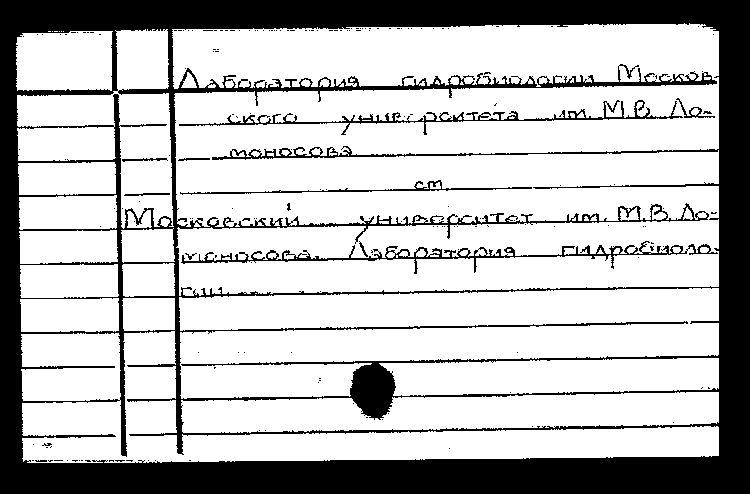 Лаборатория гидробиологии Москов-
ского университета им. М.В. Ло-
моносова
см.
Московский университет им. М.В. Ло-
моносова. Лаборатория гидробиоло-
гии.